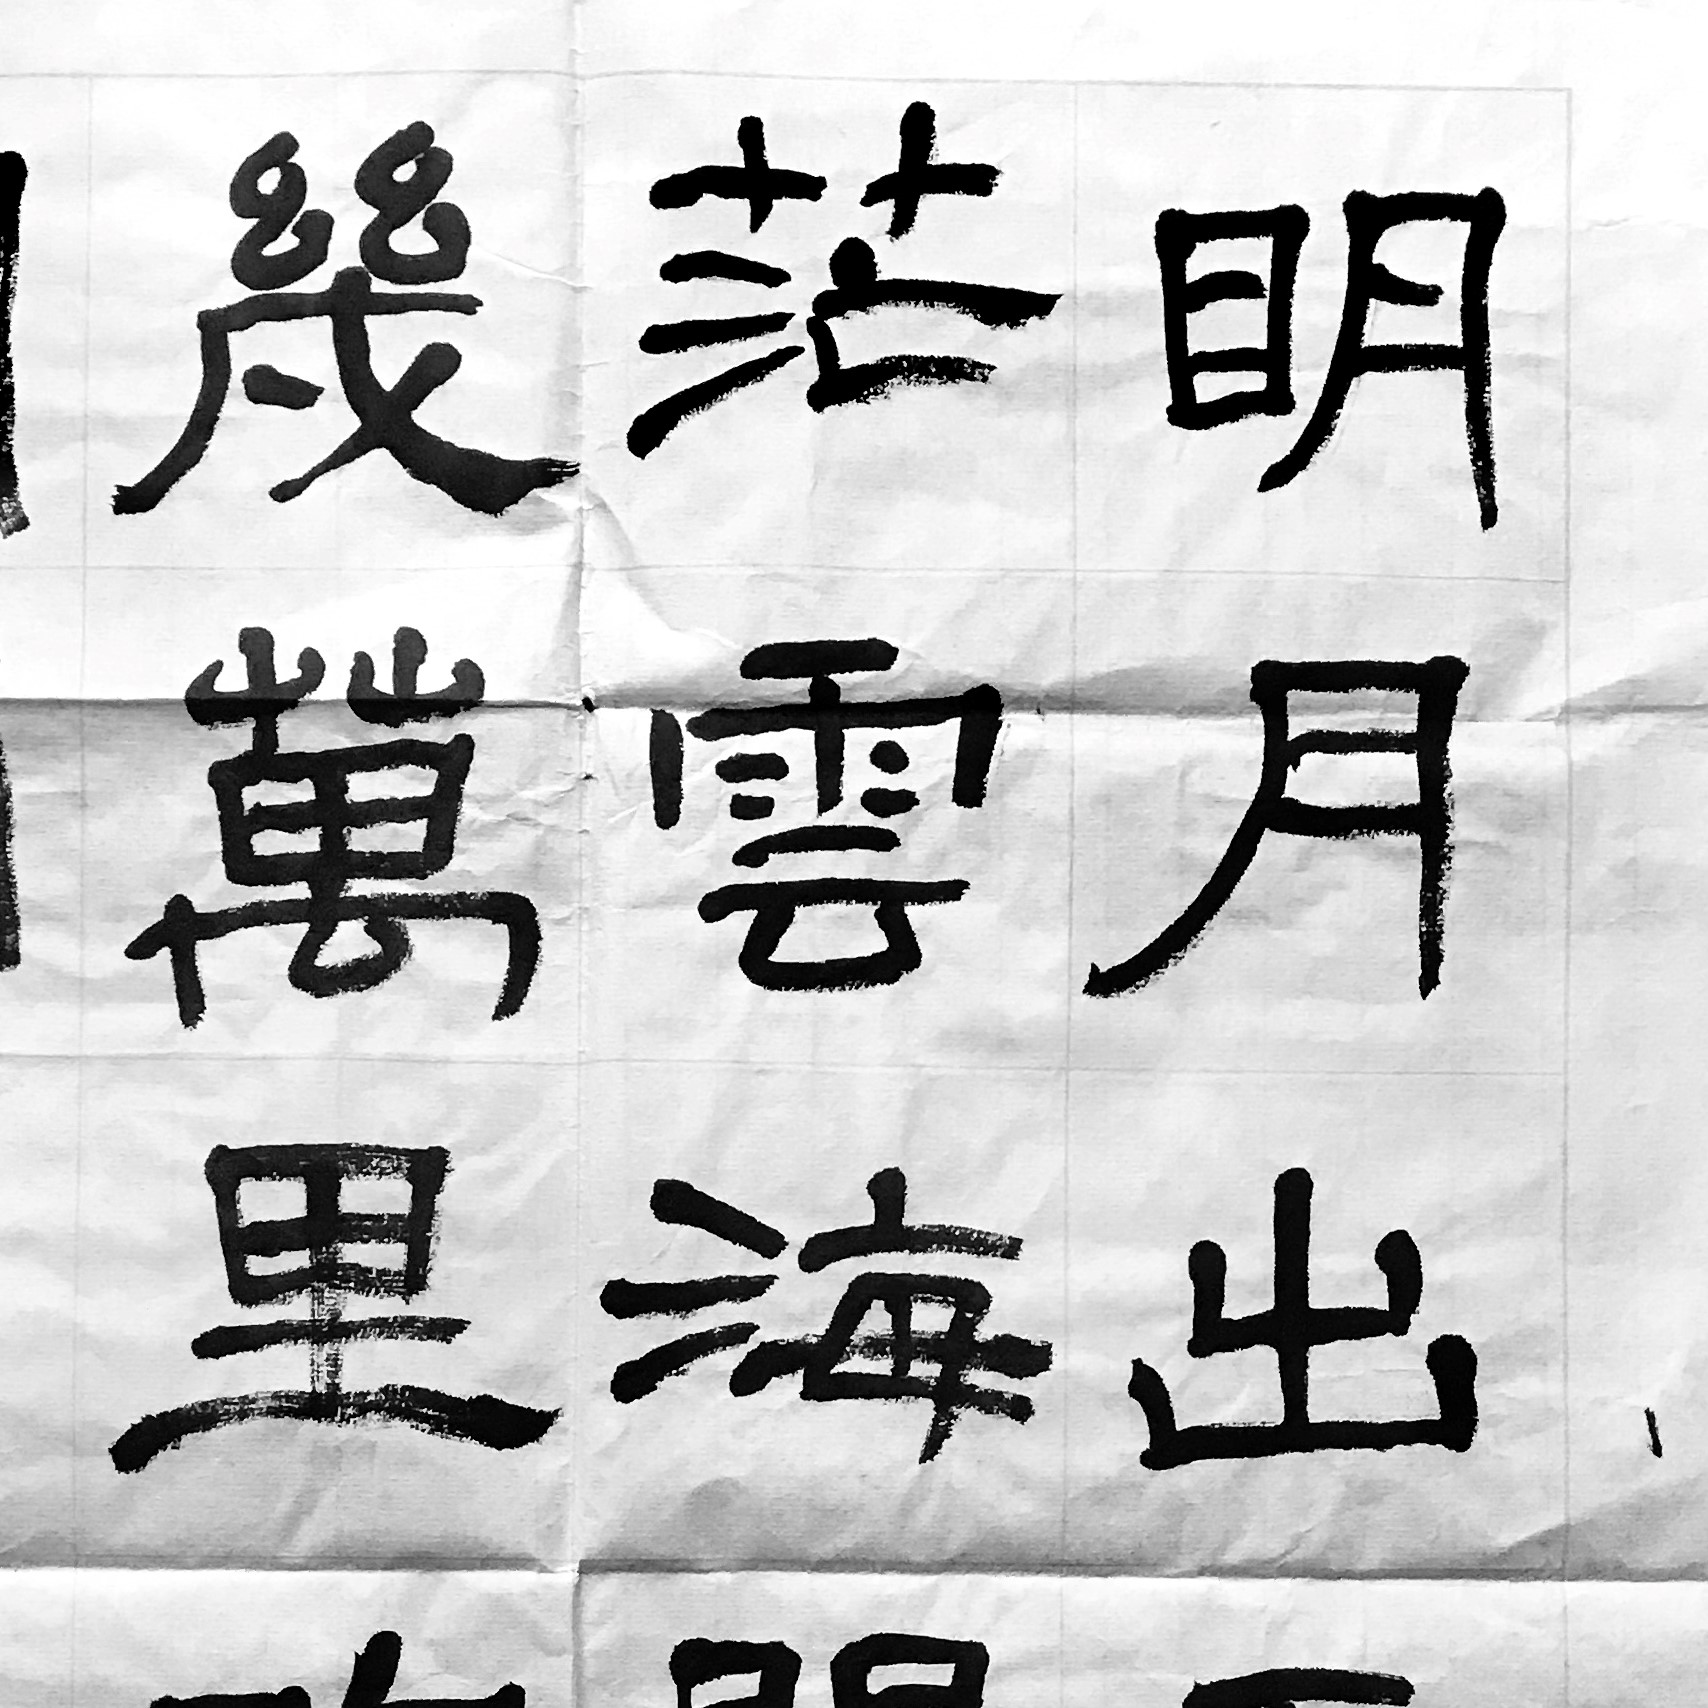 明月出
茫雲海
幾萬里